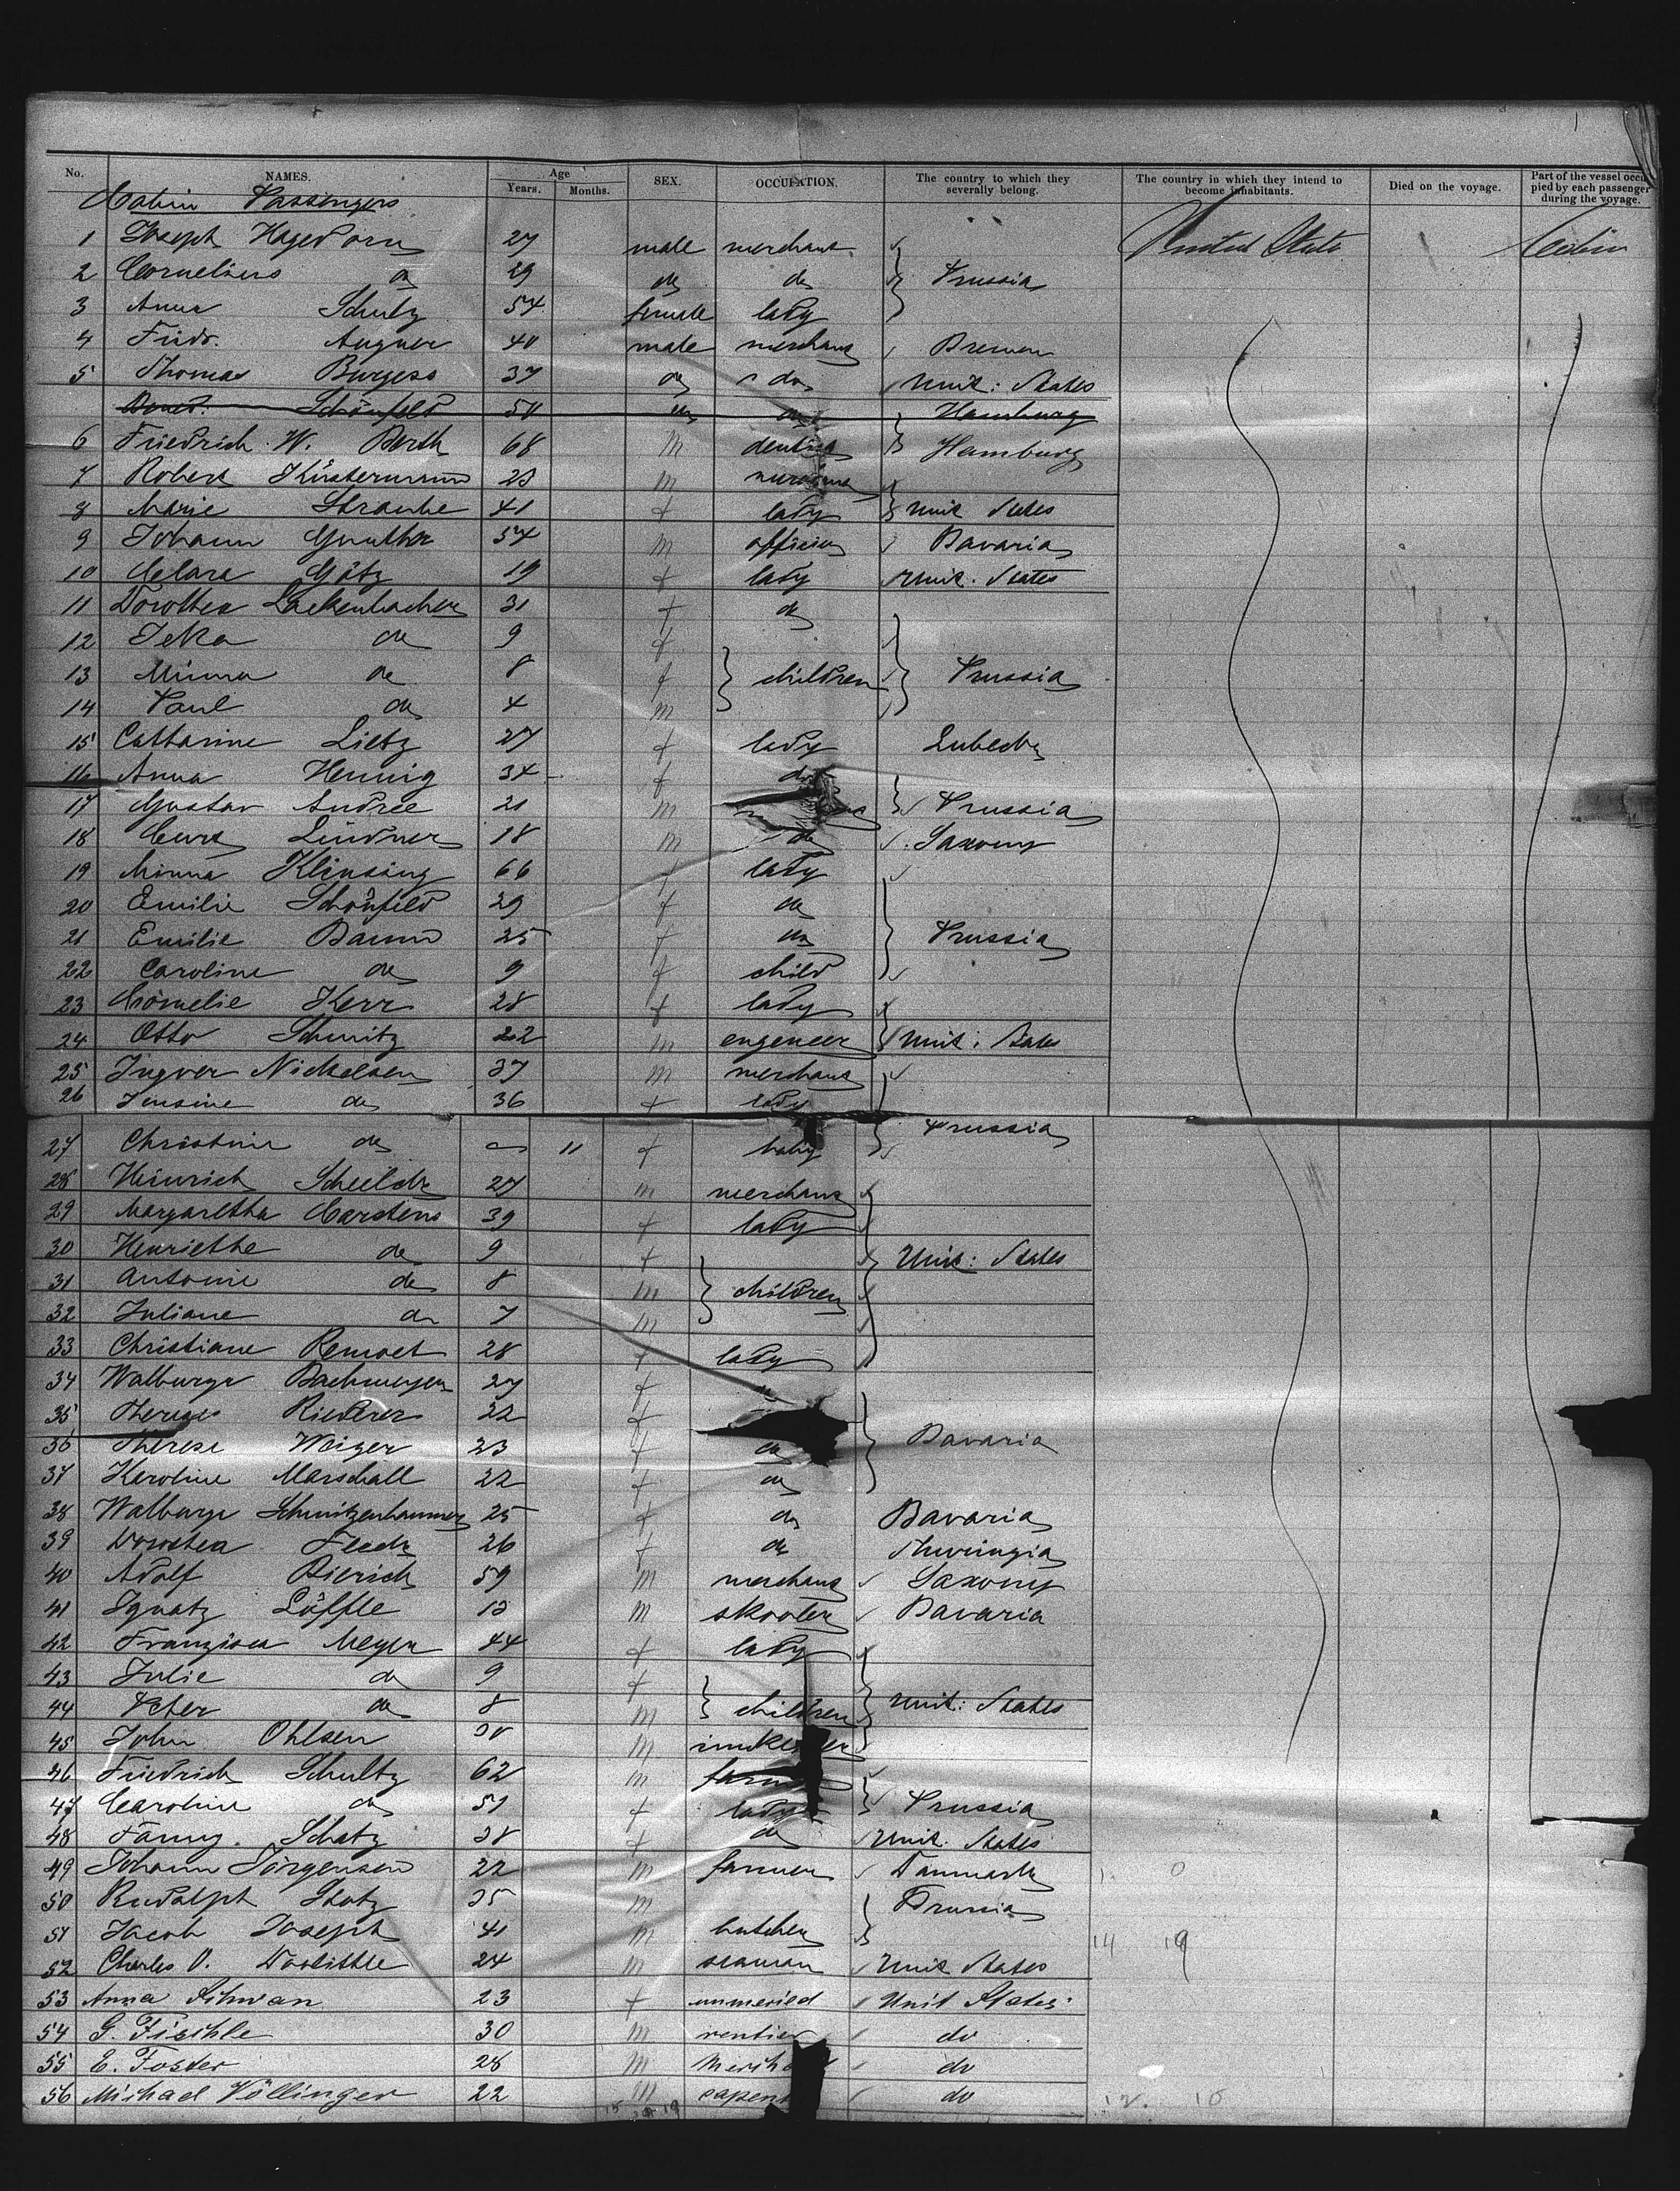 No. NAMES. Age Years. Months. SEX. OCCUPATION. The country to which they severally belong. The country in which they intend to become inhabitants. Died on the voyage. Part of the vessel occupied by each passenger during the voyage.
Cabin Passengers
1 Joseph Hagedorn 27 male merchant United States Cabin
2 Cornelius do 29 do do Prussia
3 Anna Schulz 54 female lady
4 Friedr. Augner 40 male merchant Bremen
5 Thomas Burgess 37 do do Unit: States
Schönfeld 50 do do Hamburg
6 Friedrich W. Berth 68 m dentist Hamburg
7 Robert Küstermann 23 m
8 Marie Straube 41 f lady Unit States
9 Johann Gunther 54 m officier Bavaria
10 Clara Götz 19 f lady Unit. States
11 Dorothea Lackenbacher 31 f do
12 Jeka do 9 f
13 Minna do 8 f children Prussia
14 Paul do 4 m
15 Catharine Lietz 27 f lady Lubeck
16 Anna Hennig 34 f do
17 Gustav Andree 21 m Prussia
18 Curt Lindner 18 m do Saxony
19 Minna Klensing 66 f lady
20 Emilie Schönfeld 29 f do
21 Emilie Baum 25 f do Prussia
22 Caroline do 9 f child
23 Cornelie Kerr 28 f lady
24 Otto Schmitz 22 m engeneer Unit: States
25 Ingver Nickelsen 37 m merchant
26 Jensine do 36 f lady
27 Christine do 11 f baby Prussia
28 Heinrich Scheelck 27 m merchant
29 Margaretha Carstens 39 f lady
30 Henriette do 9 f Unit: States
31 Antonie do 8 m children
32 Juliane do 7 m
33 Christiane Remoet 28 f lady
34 Walburga Bachmeyer 27 f
35 Therese Riederer 22 f
36 Therese Weizer 23 f do Bavaria
37 Karoline Marschall 22 f do
38 Walburga Schmitzenhammer 25 f do Bavaria
39 Dorothea Fleck 26 f do Thuringia
40 Adolf Bierich 59 m merchant Saxony
41 Ignatz Löffle 12 m skooler Bavaria
42 Franzisca Meyer 44 f lady
43 Julie do 9 f
44 Peter do 8 m children Unit: States
45 John Ohlsen 30 m
46 Friedrich Schultz 62 m
47 Caroline do 51 f lady Prussia
48 Fanny Schatz 38 f do Unit. States
49 Johann Jörgensen 22 m farmer Danmark
50 Rudolph Stotz 35 m Prussia
51 Jacob Joseph 41 m butcher
52 Charles O. Doolittle 24 m seaman Unit States
53 Anna Schwan 23 f unmeried Unit States
54 G. Fischle 30 m rentier do
55 E. Foster 28 m do
56 Michael Völlinger 22 m do